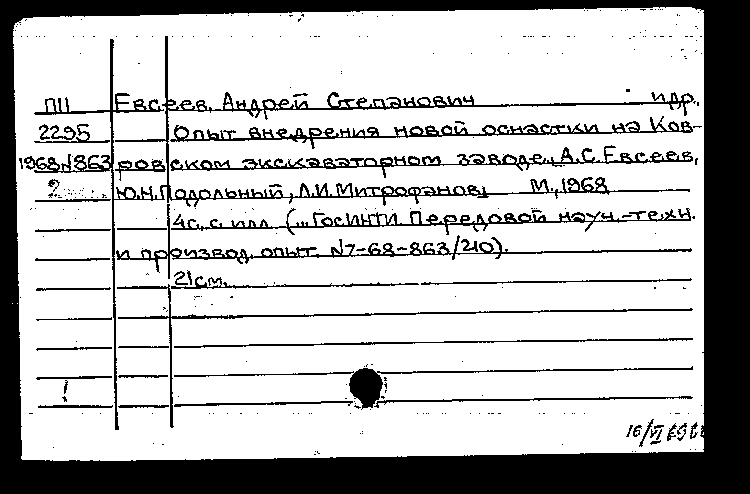 ПII Евсеев, Андрей Степанович и др.
2295 Опыт внедрения новой оснастки на Ков-
1968 N863 ровском экскаваторном заводе. А.С. Евсеев,
2 Ю.Н. Подольный, Л.И. Митрофанов. М., 1968
4с., с илл. (... ГОСИНТИ. Передовой науч.-техн.
и производ. опыт. N7-68-863/210).
21см.
!
16/VI